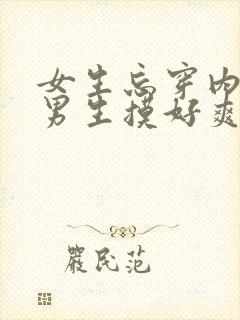 女生忘穿内
男生摸好爽
嚴民范